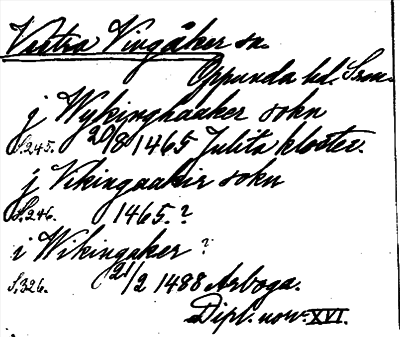 Västra Vingåker sn.
Oppunda hd. Srm.
j Wykinghaaker sokn
S.245. 20/8 1465 Julita kloster.
j Vikingaakir sokn
S.246. 1465.?
i Wikingaker ?
S.326. 21/2 1488 Arboga.
Dipl. nov. XVI.